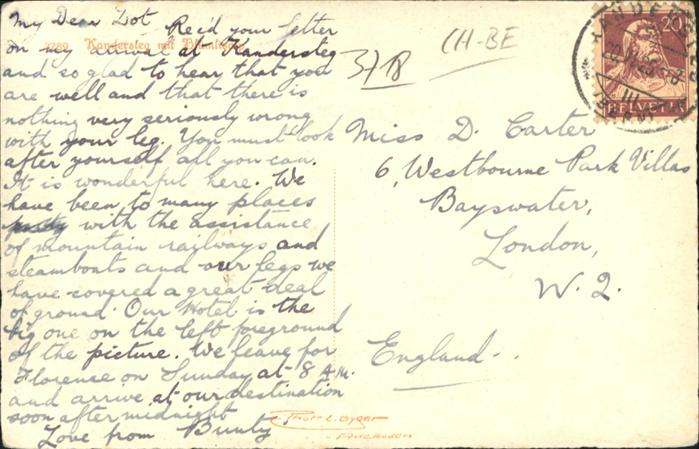 My Dear Dot
Rec'd your letter
on my arrival at Kandersteg
and so glad to hear that you
are well and that there is
nothing very seriously wrong
with your leg. You must look
after yourself all you can.
It is wonderful here. We
have been to many places
with the assistance
of mountain railways and
steamboats and our legs we
have covered a great deal
of ground. Our Hotel is the
big one on the left foreground
of the picture. We leave for
Florence on Sunday at 8 A.M.
and arrive at our destination
soon after midnight
Love from Bunty
Kandersteg mit
3/18
CH-BE
20
HELVETIA
Miss D. Carter
6, Westbourne Park Villas
Bayswater,
London,
W. 2.
England.